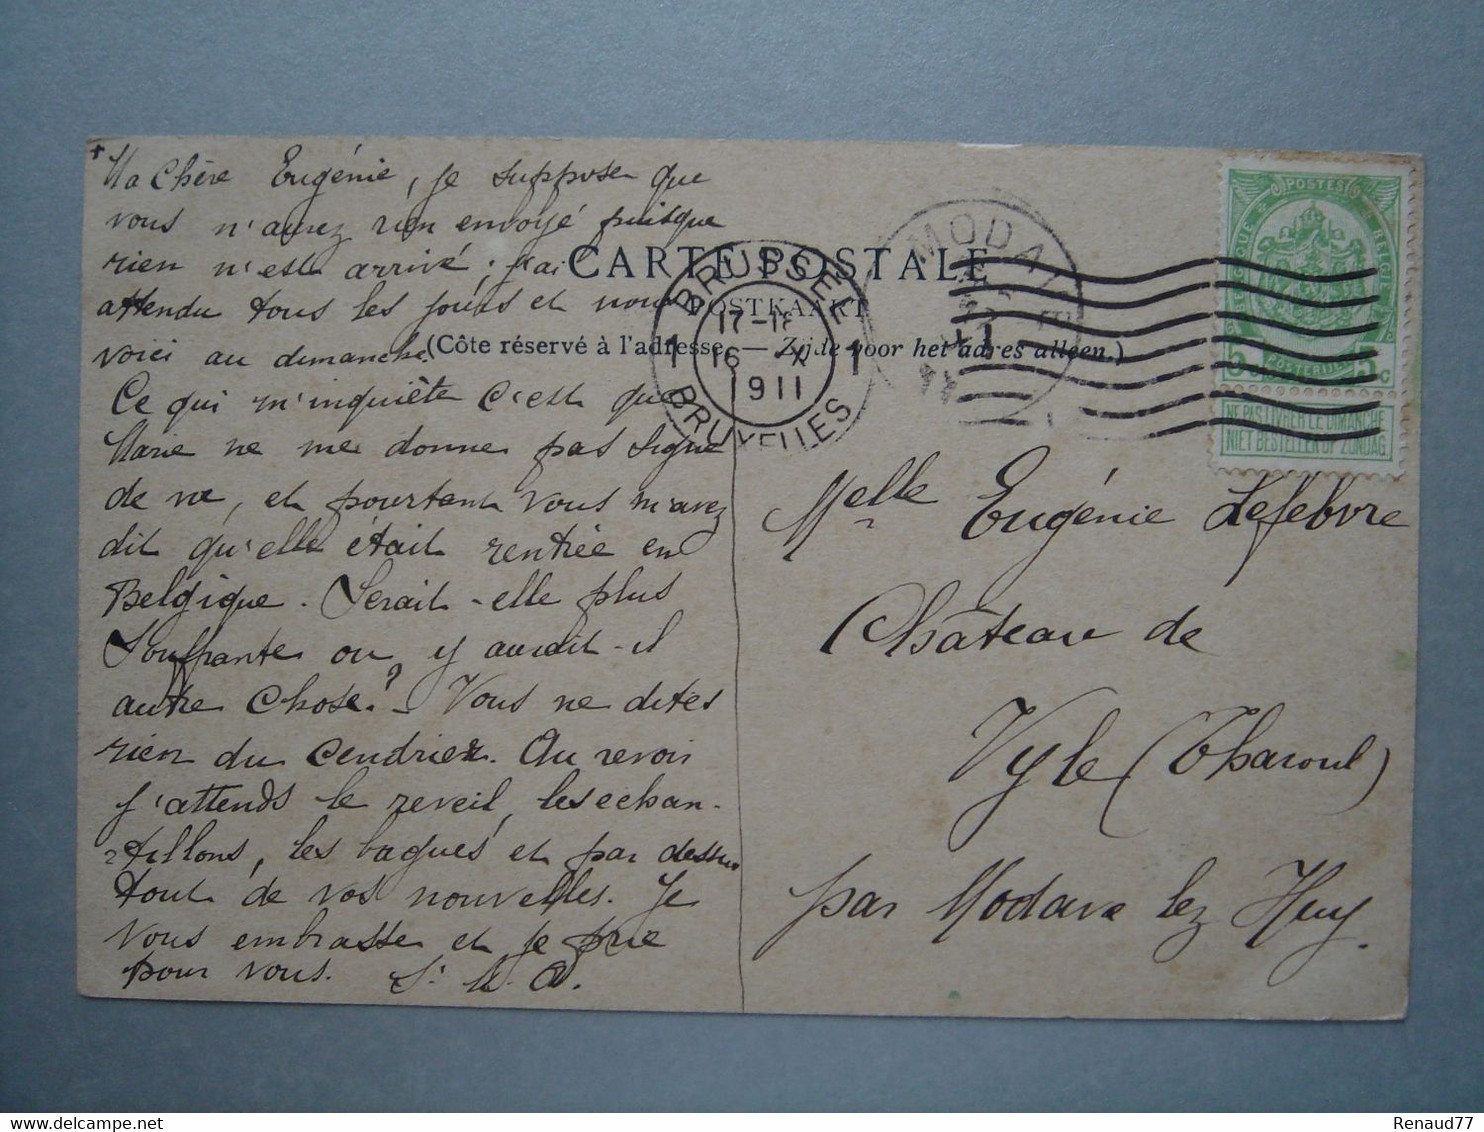 +
Ma Chère Eugénie, je suppose que
vous n'avez rien envoyé puisque
rien n'est arrivé ; j'ai
attendu tous les jours et nous
voici au dimanche.
Ce qui m'inquiète c'est que
Marie ne me donne pas signe
de vie, et pourtant vous m'avez
dit qu'elle était rentrée en
Belgique. Serait-elle plus
Souffrante ou y aurait-il
autre chose? - Vous ne dites
rien du Cendrier. Au revoir
J'attends le reveil, les echan-
tillons, les bagues et par dessus
tout de vos nouvelles. Je
Vous embrasse et je prie
pour vous. S. M. A.
CARTE POSTALE
POSTKAART
(Côte réservé à l'adresse. — Zijde voor het adres alleen.)
BRUSSEL
17-18
1 16 X 1
1911
BRUXELLES
MODAVE
POSTES
BELGIQUE BELGIE
5 POSTERIJEN 5c
NE PAS LIVRER LE DIMANCHE
NIET BESTELLEN OP ZONDAG
Melle Eugénie Lefebvre
Château de
Vyle (Tharoul)
par Modave lez Huy.
Renaud77